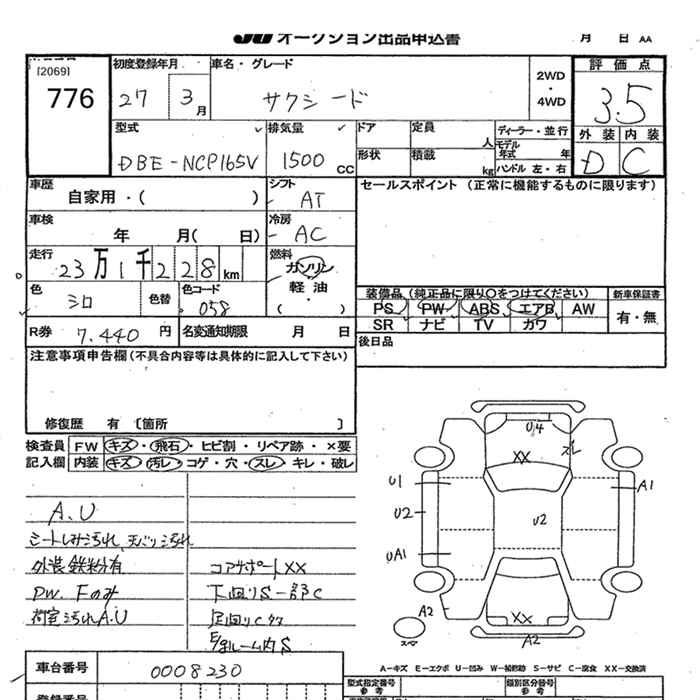 JU オークション出品申込書 月 日 AA
[2069]
776
初度登録年月 27 3 月
車名・グレード サクシード
2WD ・ 4WD
評価点 3.5
外装 内装
D C
型式 DBE-NCP165V
排気量 1500 CC
ドア 定員 人
形状 積載 kg
ディーラー・並行
モデル年式 年
ハンドル 左・右
車歴 自家用・( )
シフト AT
セールスポイント (正常に機能するものに限ります)
車検 年 月( 日)
冷房 AC
走行 23万1千228km
燃料 ガソリン
軽・油
( )
色 シロ 色替
色コード 058
装備品 (純正品に限り○をつけてください) 新車保証書
PS PW ABS エアB AW 有・無
SR ナビ TV カワ
R券 7.440 円 名変通知期限 月 日
後日品
注意事項申告欄(不具合内容等は具体的に記入して下さい)
修復歴 有 [箇所 ]
検査員 FW キズ・飛石・ヒビ割・リペア跡・×要
記入欄 内装 キズ・汚レ・コゲ・穴・スレ・キレ・破レ
A.U
シートしみ汚れ、天バリ汚れ
外装鉄粉有 コアサポートXX
PW.Fのみ 下回りS一部C
荷室汚れA.U 足回りCケ
E/gルーム内S
U4
スレ
XX
U1 A1
U2 U2
UA1
A2 XX
スマ A2
A-キズ E-エクボ U-凹み W-補修跡 S-サビ C-腐食 XX-交換済
車台番号 0008230
型式指定番号 参考 類別区分番号 参考